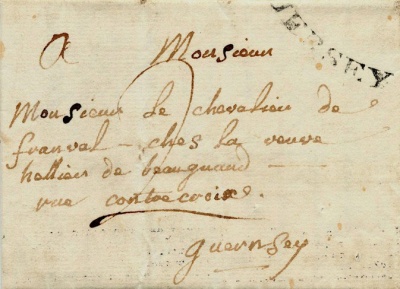 JERSEY
A Monsieur
Monsieur le chevalier de
franval - ches la veuve
hellier de beauguand
rue contre croix.
guernsey